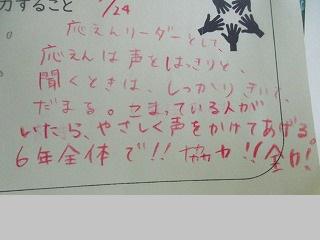 力すること 1/24
応えんリーダーとして、
応えんは声をはっきりと、
聞くときは、しっかりきいて、
だまる。こまっている人が
いたら、やさしく声をかけてあげる。
6年全体で!!協力!!全力!